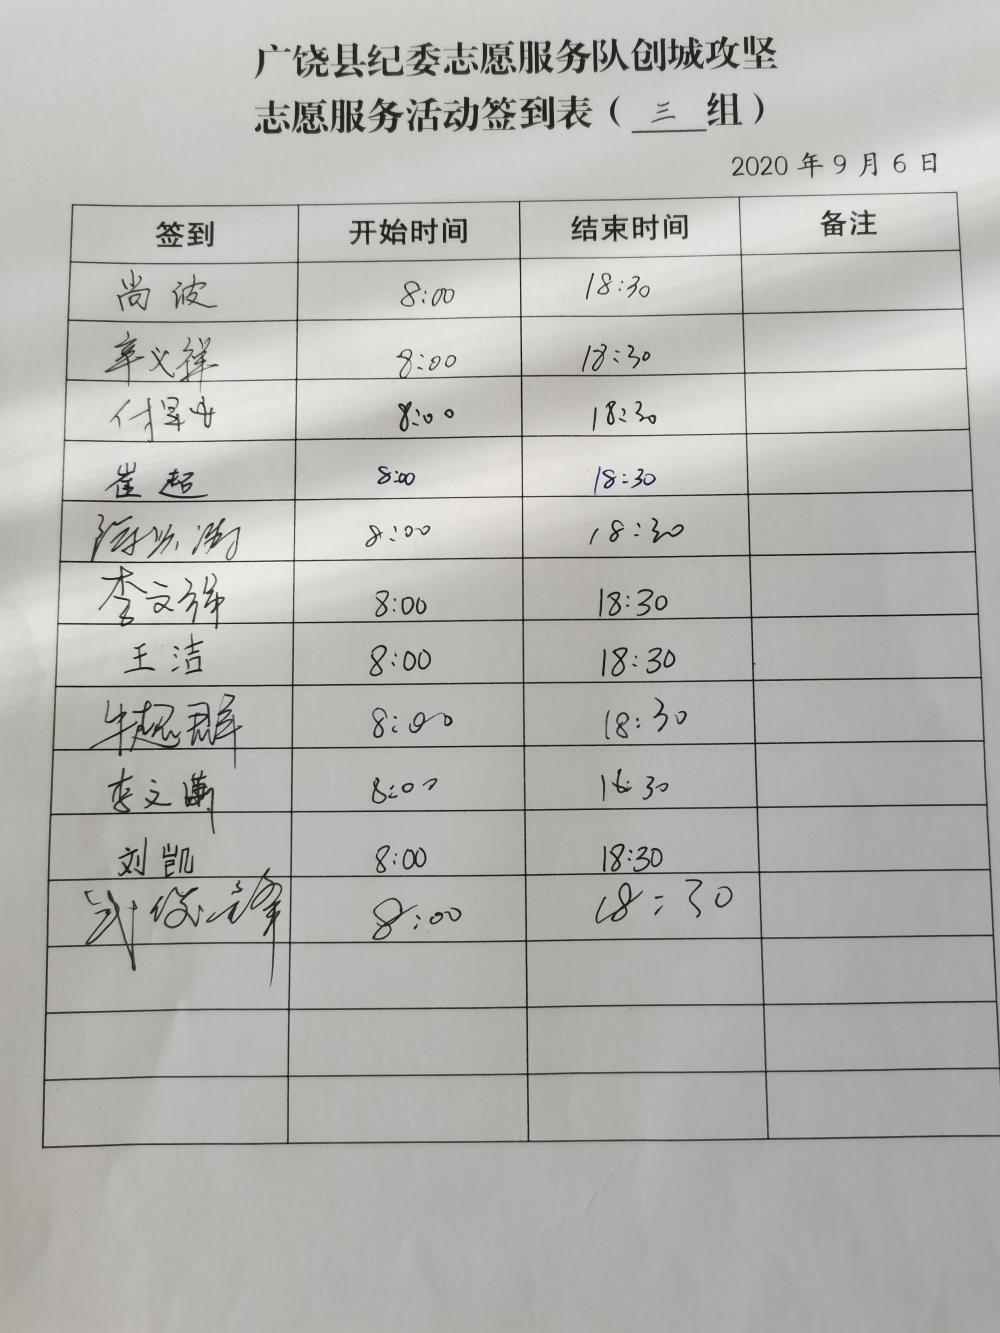 广饶县纪委志愿服务队创城攻坚
志愿服务活动签到表（三组）
2020年9月6日
签到 开始时间 结束时间 备注
尚波 8:00 18:30
辛义祥 8:00 18:30
8:00 18:30
崔超 8:00 18:30
8:00 18:30
李文锋 8:00 18:30
王洁 8:00 18:30
牛超群 8:00 18:30
李文 8:00 18:30
刘凯 8:00 18:30
8:00 18:30